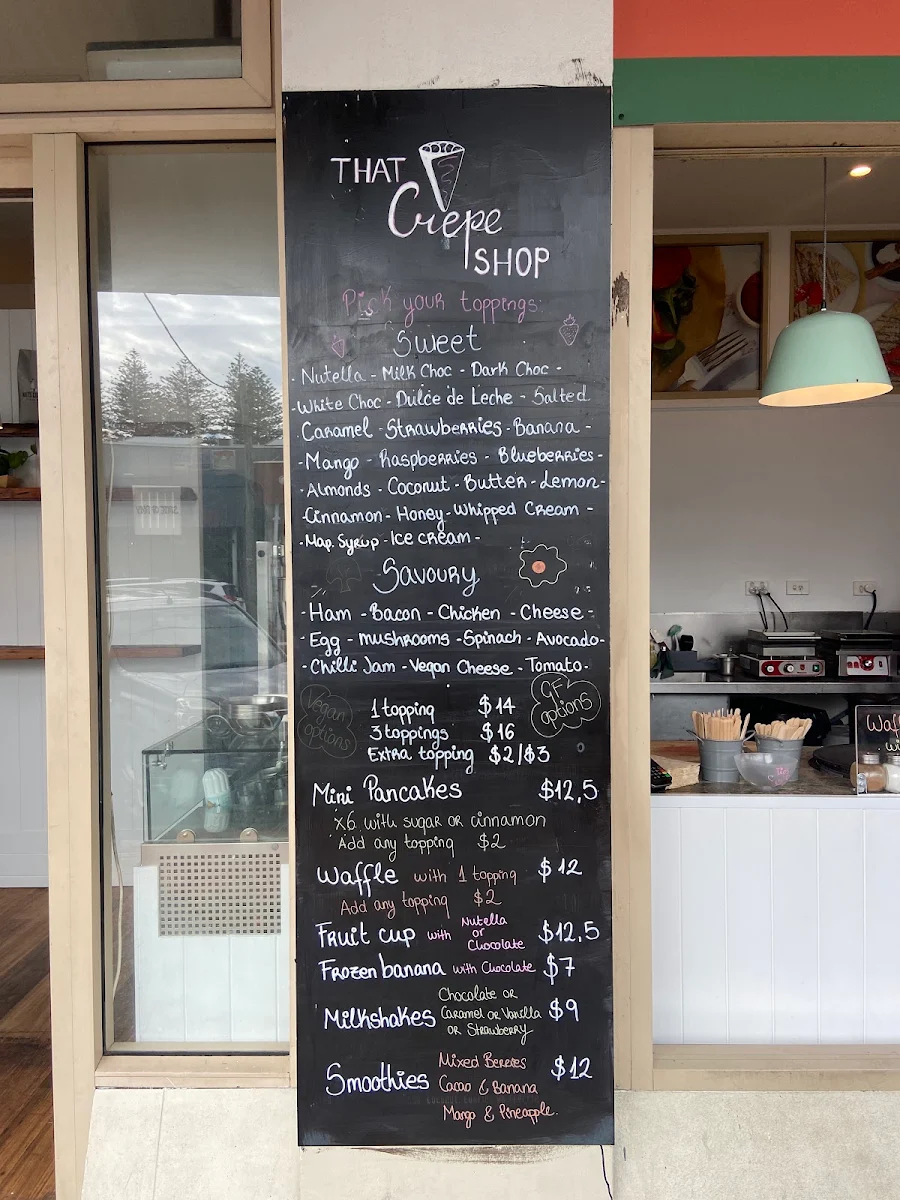 THAT
Crepe
SHOP
Pick your toppings:
Sweet
- Nutella - Milk Choc - Dark Choc -
-White Choc - Dulce de Leche - Salted
Caramel - Strawberries - Banana -
-Mango - Raspberries - Blueberries-
-Almonds - Coconut - Butter - Lemon-
-Cinnamon - Honey - Whipped Cream -
-Map. Syrup - Ice cream -
Savoury
-Ham - Bacon - Chicken - Cheese -
-Egg - mushrooms - Spinach - Avocado-
-Chilli Jam - Vegan Cheese - Tomato-
Vegan options
GF options
1 topping $14
3 toppings $16
Extra topping $2/$3
Mini Pancakes $12,5
x6 with sugar or cinnamon
Add any topping $2
Waffle with 1 topping $12
Add any topping $2
Fruit cup with Nutella or Chocolate $12,5
Frozen banana with Chocolate $7
Milkshakes Chocolate or Caramel or Vanilla or Strawberry $9
Smoothies Mixed Berries $12
Cacao & Banana
Mango & Pineapple.